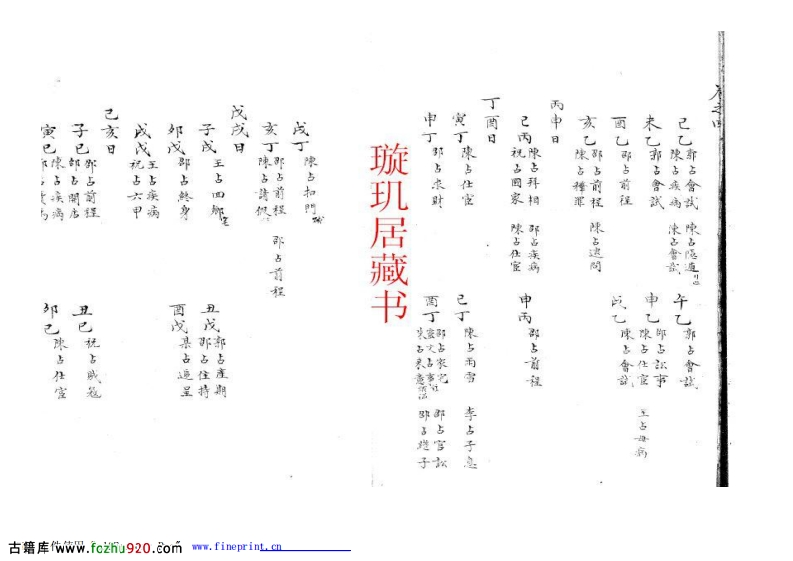 卷之四
己乙 郭占會試 陳占隱遁
陳占疾病 陳占會試
午乙 郭占會試
未乙 郭占會試
申乙 邵占訟事 王占母病
陳占任宦
酉乙 邵占前程
戌乙 陳占會試
亥乙 邵占前程 陳占逮問
陳占種罪
丙申日
己丙 陳占拜相 邵占疾病
祝占國家 陳占任宦
申丙 邵占前程
丁酉日
寅丁 陳占任宦
己丁 陳占雨雪 李占子息
申丁 邵占求財
酉丁 邵占家宅 邵占官訟
邵占继子
戌丁 陳占扣門
亥丁 邵占前程 邵占前程
陳占請假
戊戌日
子戌 王占四鄉
丑戌 郭占產期
邵占住持
卯戌 邵占終身
酉戌 某占逞呈
戌戌 王占疾病
祝占六甲
己亥日
子巳 邵占前程
邵占開店
丑巳 祝占賊寇
寅巳 陳占疾病
卯巳 陳占任宦
璇玑居藏书
古籍库 www.fozhu920.com
www.fineprint.cn